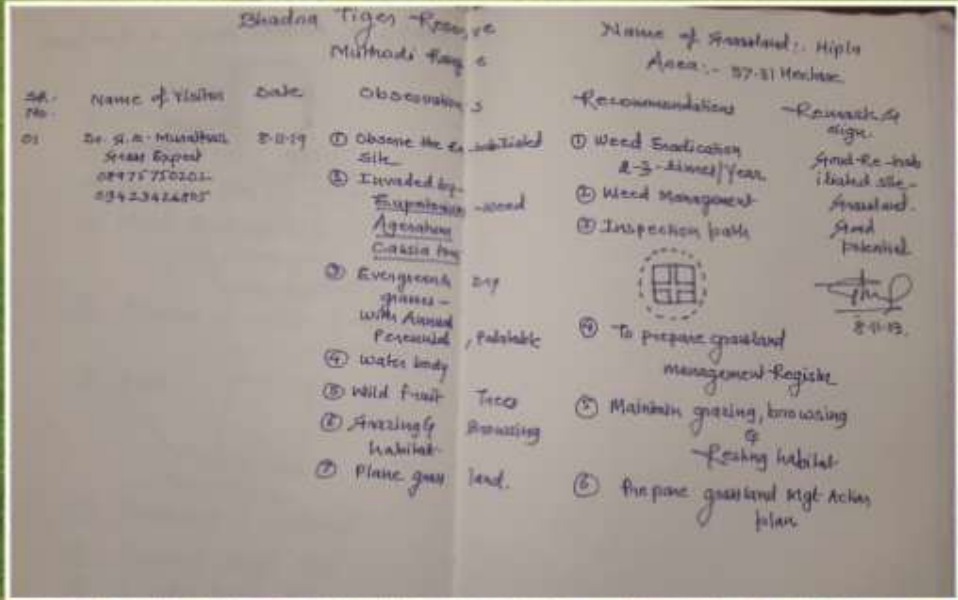 Bhadra Tiger Reserve
Muthodi Range
Name of Grassland:- Hipla
Area:- 37.31 Hectare
SR. No.
Name of Visitor
Date
Observations
Recommendations
Remark & sign.
01
Dr. G. R.
Grass Expert
08975750201
09423426805
8-11-19
① Observe the
site
② Invaded by-
Eupatorium - weed
Ageratum
Cassia tora
③ Evergreen &
grasses -
with Annual
Perennial, Palatable
④ Water body
⑤ Wild fruit Trees
⑥ Grazing & Browsing
habitat
⑦ Plane grass land.
① Weed Eradication
2-3-times/year
② Weed Management
③ Inspection path
④ To prepare grassland
management Register
⑤ Maintain grazing, browsing
&
Resting habitat
⑥ Prepare grassland Mgt Action
plan
Good Re-hab
ilitated site-
Grassland.
Good
potential